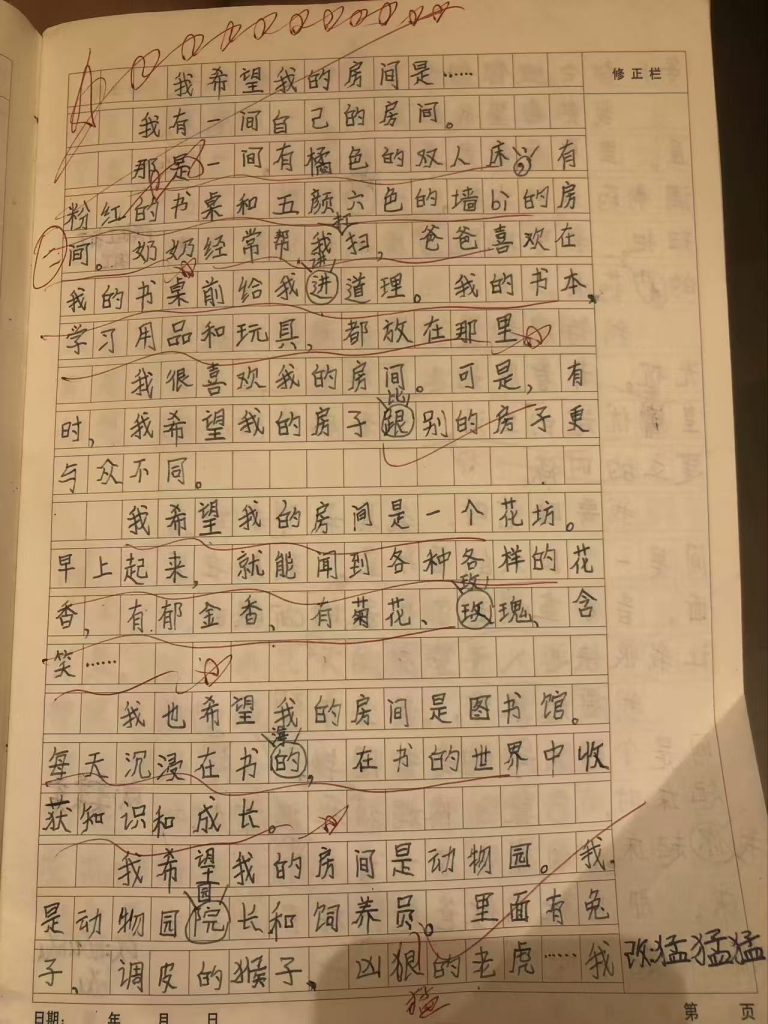 我希望我的房间是……
修正栏
我有一间自己的房间。
那是一间有橘色的双人床，有
粉红的书桌和五颜六色的墙bì的房
打
间。奶奶经常帮我扫，爸爸喜欢在
讲
我的书桌前给我进道理。我的书本、
学习用品和玩具，都放在那里。
我很喜欢我的房间。可是，有
比
时，我希望我的房子跟别的房子更
与众不同。
我希望我的房间是一个花坊。
早上起来，就能闻到各种各样的花
玫
香，有郁金香、有菊花、玫瑰、含
笑……
我也希望我的房间是图书馆。
海
每天沉浸在书的，在书的世界中收
获知识和成长。
我希望我的房间是动物园。我
园
是动物园院长和饲养员。里面有兔
子、调皮的猴子、凶狠的老虎……我
改猛猛猛
猛
日期： 年 月 日
第 页